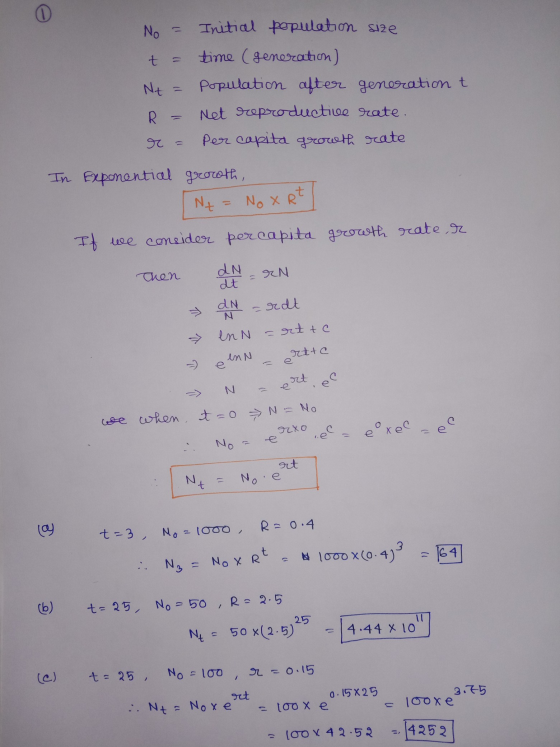 ①
N₀ = Initial population size
t = time (generation)
Nt = Population after generation t
R = Net reproductive rate.
r = Per capita growth rate
In Exponential growth,
Nt = N₀ × R^t
If we consider percapita growth rate r
Then dN/dt = rN
⇒ dN/N = rdt
⇒ lnN = rt + c
⇒ e^lnN = e^rt+c
⇒ N = e^rt . e^c
we when t = 0 ⇒ N = N₀
∴ N₀ = e^r×0 . e^c = e⁰ × e^c = e^c
∴ Nt = N₀ . e^rt
(a) t = 3, N₀ = 1000, R = 0.4
∴ N₃ = N₀ × R^t = 1000×(0.4)³ = 64
(b) t = 25, N₀ = 50, R = 2.5
Nt = 50×(2.5)²⁵ = 4.44 × 10¹¹
(c) t = 25, N₀ = 100, r = 0.15
∴ Nt = N₀ × e^rt = 100 × e^0.15×25 = 100×e^3.75
= 100 × 42.52 = 4252